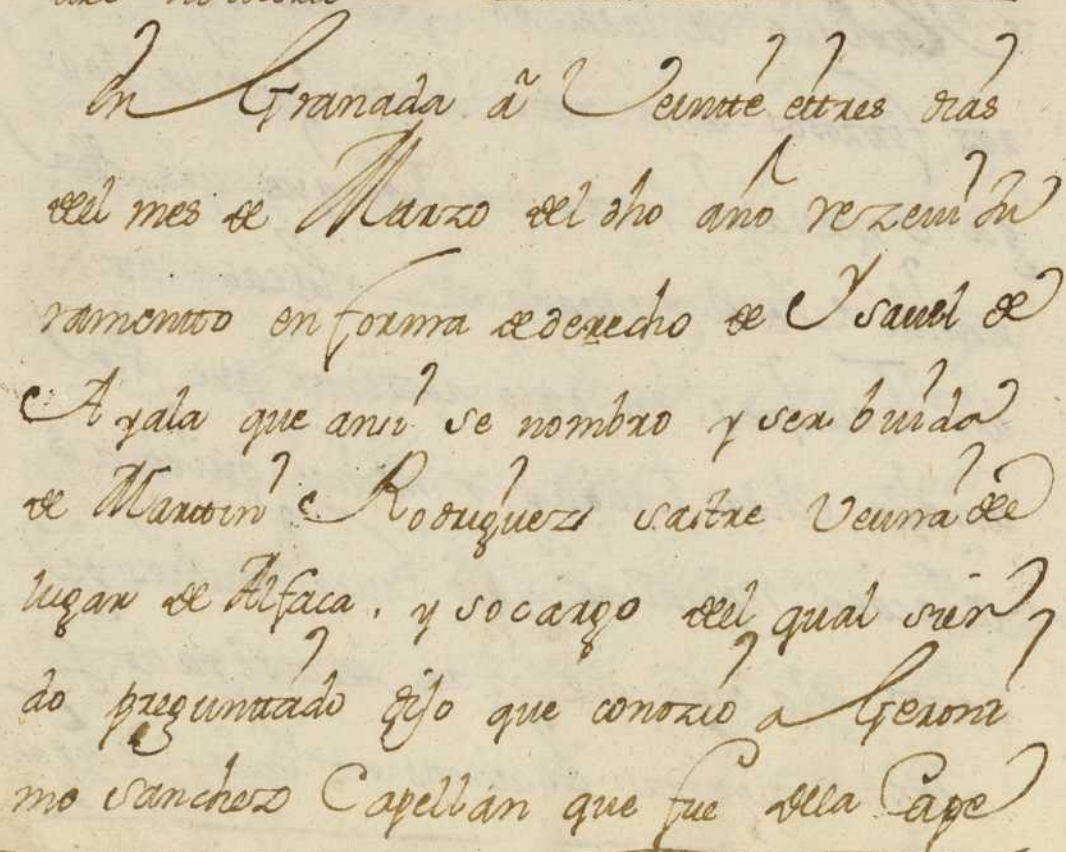 En Granada a Veintte ettres dias
dell mes de Marzo del dho año rezeui Ju
ramentto en forma de derecho de Ysauel de
Ayala que ansi se nombro y ser biuda
de Marttin Rodriguez sastre Veçina de
lugar de Alfaca. y socargo dell qual sien
do preguntado dijo que conozio a Geroni
mo sanchez Capellan que fue della Cape